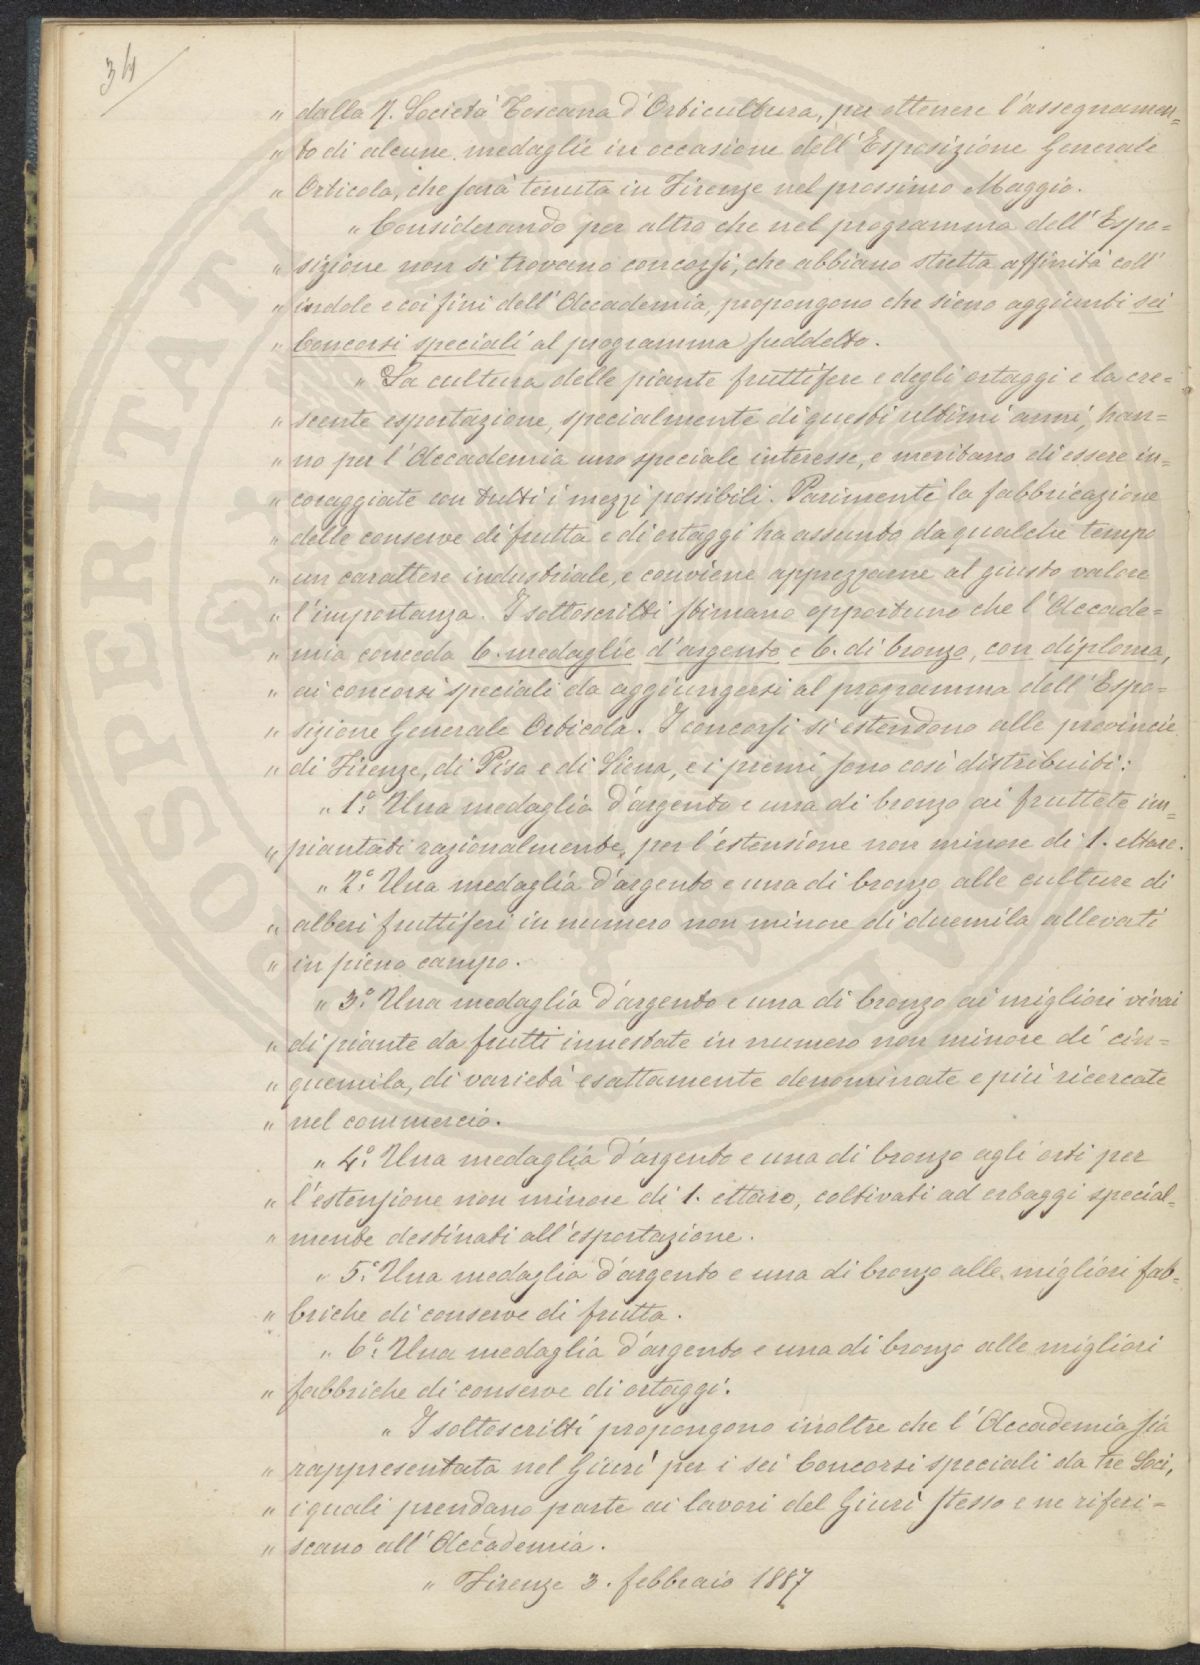 34
" dalla R. Società Toscana d'Orticultura, per ottenere l'assegnamen=
" to di alcune medaglie in occasione dell'Esposizione Generale
" Orticola, che sarà tenuta in Firenze nel prossimo Maggio.
" Considerando per altro che nel programma dell'Espo=
" sizione non si trovano concorsi, che abbiano stretta affinità coll'
" indole e coi fini dell'Accademia, propongono che sieno aggiunti sei
" Concorsi speciali al programma suddetto.
" La cultura delle piante fruttifere e degli ortaggi e la cre=
" scente esportazione, specialmente di questi ultimi anni, han=
" no per l'Accademia uno speciale interesse, e meritano di essere in=
" coraggiate con tutti i mezzi possibili. Parimenti la fabbricazione
" delle conserve di frutta e di ortaggi ha assunto da qualche tempo
" un carattere industriale, e conviene apprezzarne al giusto valore
" l'importanza. I sottoscritti stimano opportuno che l'Accade=
" mia conceda 6. medaglie d'argento e 6. di bronzo, con diploma,
" ai concorsi speciali da aggiungersi al programma dell'Espo=
" sizione Generale Orticola. I concorsi si estendono alle provincie
" di Firenze, di Pisa e di Siena, e i premi sono così distribuiti:
" 1.° Una medaglia d'argento e una di bronzo ai frutteti im=
" piantati razionalmente, per l'estensione non minore di 1. ettaro.
" 2.° Una medaglia d'argento e una di bronzo alle culture di
" alberi fruttiferi in numero non minore di duemila allevati
" in pieno campo.
" 3.° Una medaglia d'argento e una di bronzo ai migliori vivai
" di piante da frutti innestate in numero non minore di cin=
" quemila, di varietà esattamente denominate e più ricercate
" nel commercio.
" 4.° Una medaglia d'argento e una di bronzo agli orti per
" l'estensione non minore di 1. ettaro, coltivati ad erbaggi special=
" mente destinati all'esportazione.
" 5.° Una medaglia d'argento e una di bronzo alle migliori fab=
" briche di conserve di frutta.
" 6.° Una medaglia d'argento e una di bronzo alle migliori
" fabbriche di conserve di ortaggi.
" I sottoscritti propongono inoltre che l'Accademia sia
" rappresentata nel Giurì per i sei Concorsi speciali da tre Soci,
" i quali prendano parte ai lavori del Giurì stesso e ne riferi=
" scano all'Accademia.
" Firenze 3. febbraio 1887